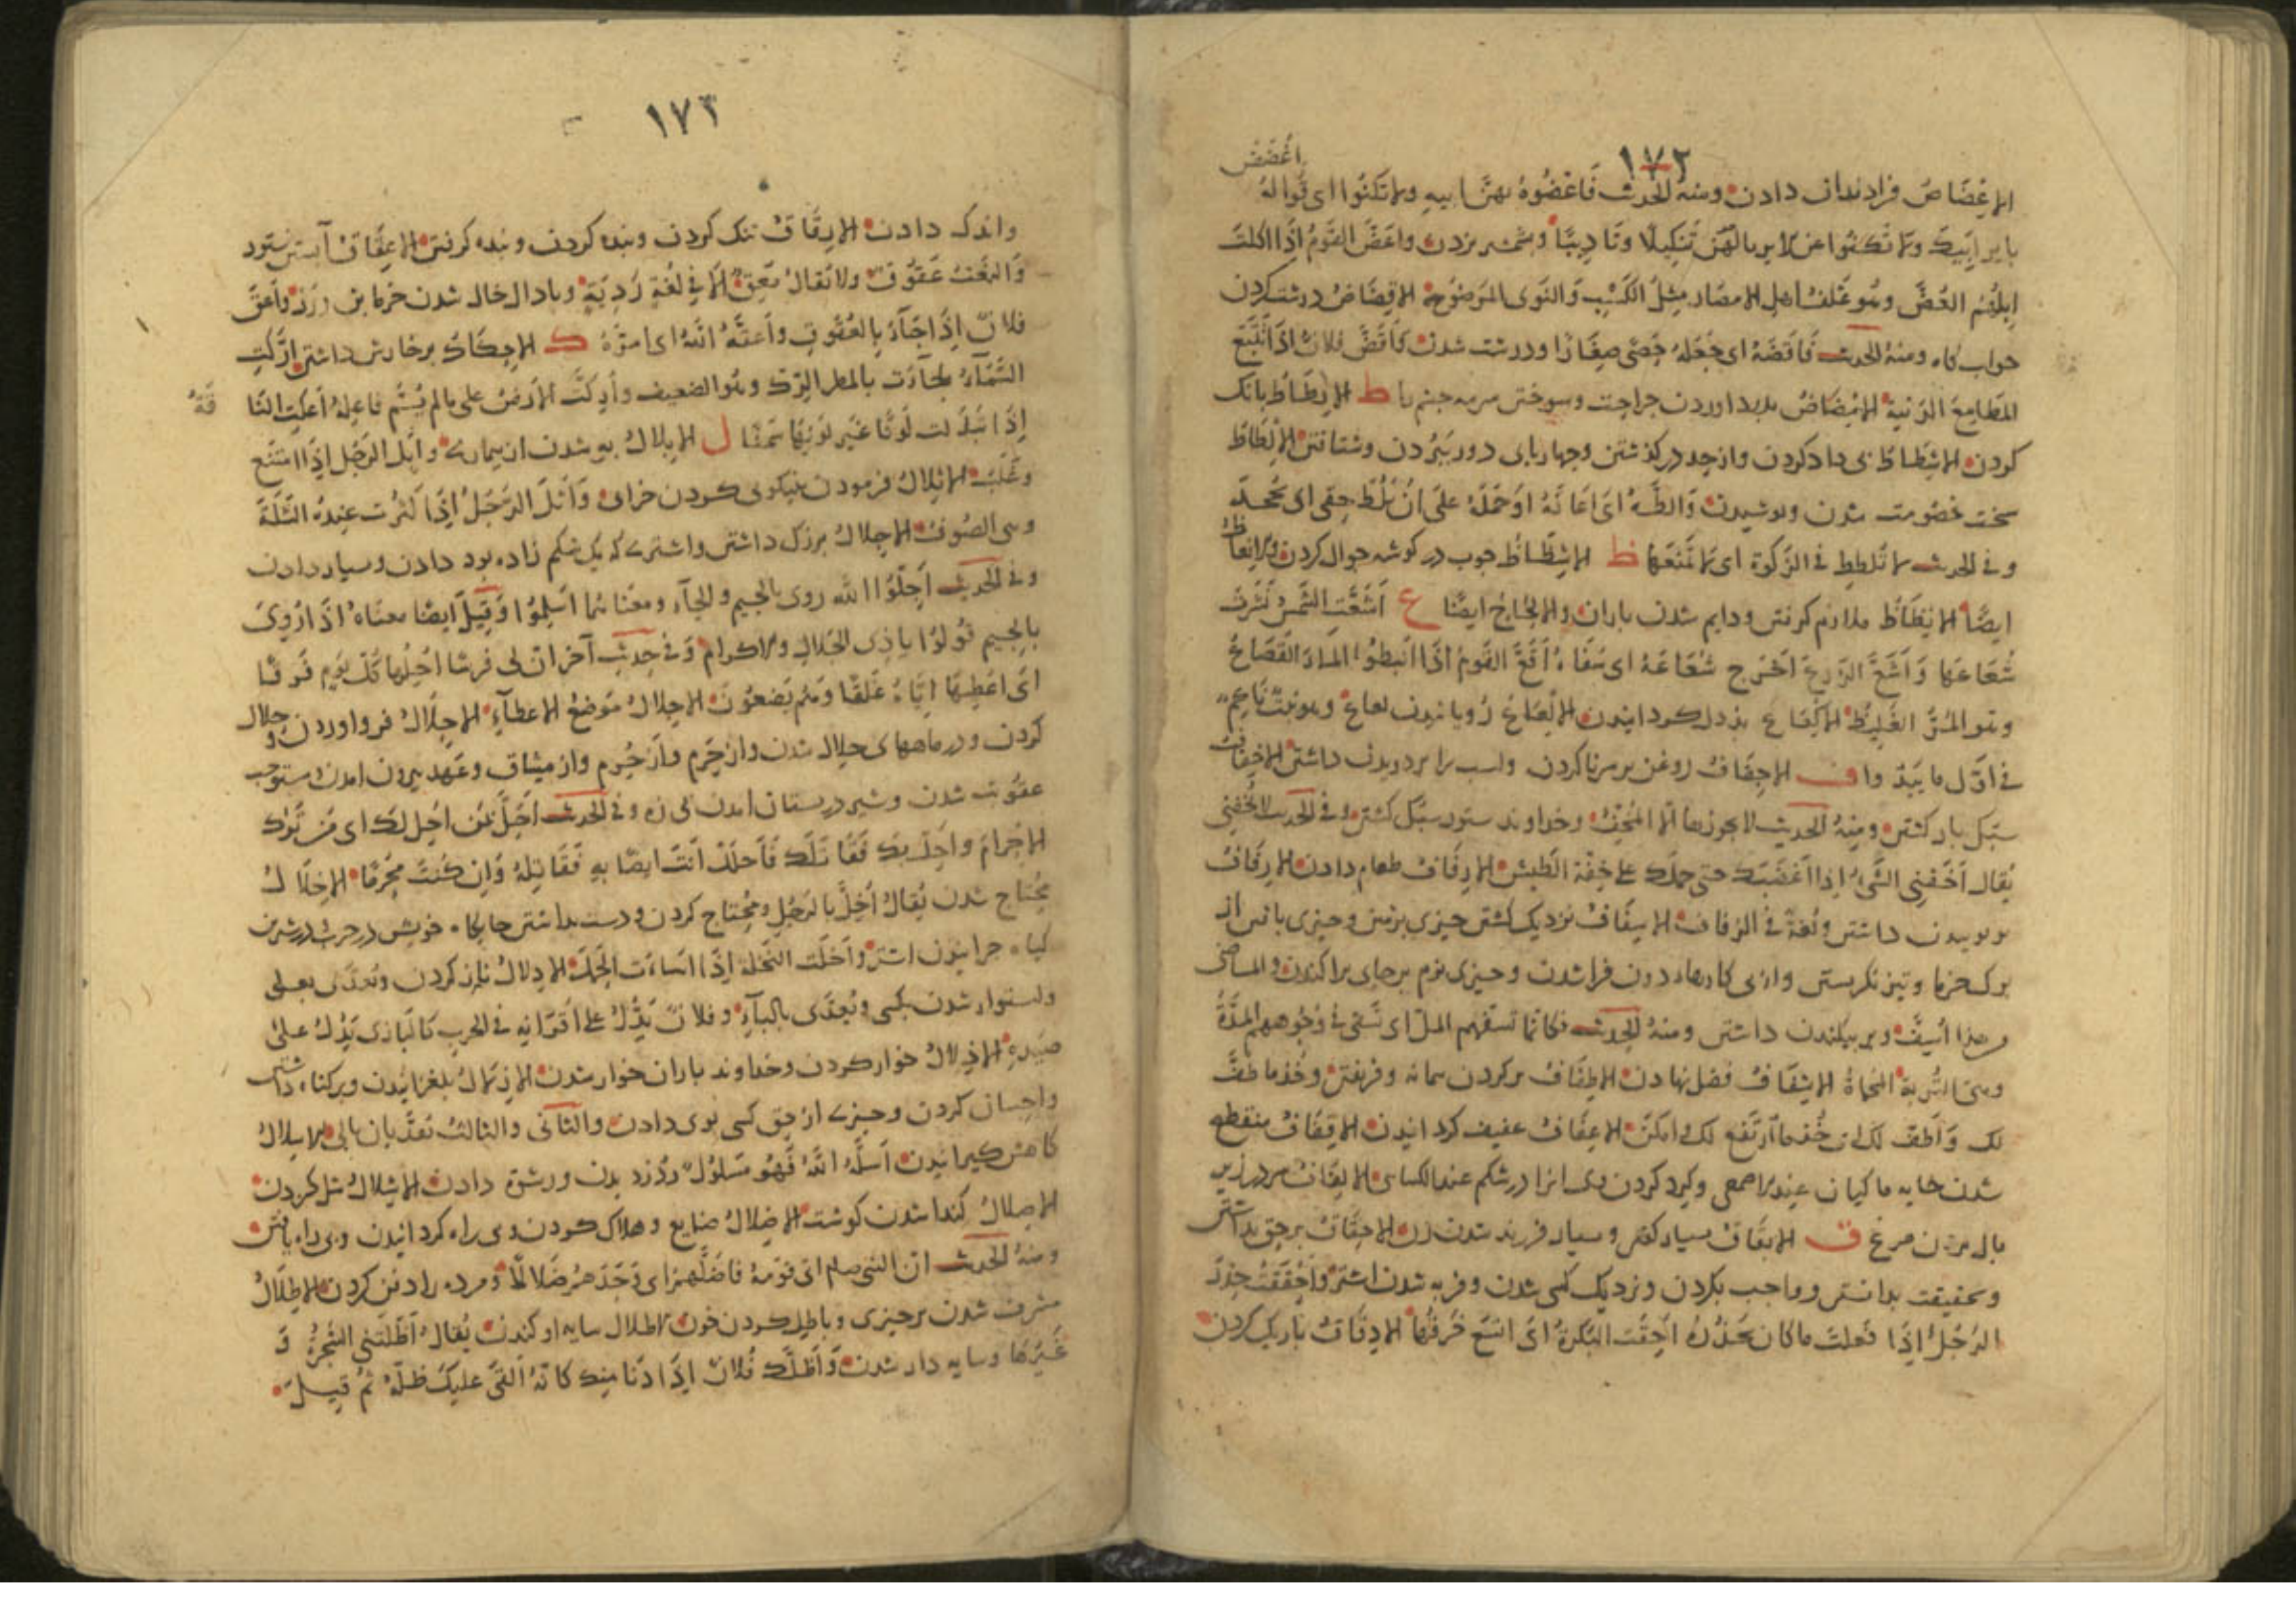 ١٧٢
اغضض
الاعضاض فرا دندان دادن ومنه الحديث فاعضوه بهن ابيه ولا تكنوا اى قولوا له
باير ابيك ولا تكفوا عن الاير بالهن تنكيلا وتاديبا وشمشير بزدن واعض القوم اذا اكلت
ابلهم العض وهو علف اهل الامصار مثل الكسب والنوى المرضوخة الاقضاض درشت كردن
خواب كاه ومنه الحديث فاقضه اى جعله حصى صغارا ودرشت شدن واقض فلان اذا تتبع
المطامع الدنية الامضاض بدرد اوردن جراحت وسوختن سرمه چشم را ط الاطاط بانك
كردن الاشطاط بى داد كردن واز حد در كذشتن وچهارپاى دور ببردن وشتافتن الالطاط
سخت خصومت شدن وپوشيدن والطه اى اعانه او حمله على ان يلط حقى اى يجحده
وفي الحديث لا تلطط فى الزكوة اى لا تمنعها ظ الاشظاظ چوب در كوشه جوال كردن والانعاظ
ايضا الالظاظ ملازم كرفتن ودايم شدن باران والالحاح ايضا ع اشعت الشمس نشرت
شعاعها واشع الزرع اخرج شعاعه اى سفاه اقع القوم اذا انبطوا الماء القعاع
وهو المر الغليظ الاكعاع بددل كردانيدن الالعاع رويانيدن لعاع وهو نبت ناعم
فى اول ما يبدوا ف الاحفاف روغن بر سر ناكردن واسب را بر دويدن داشتن الاخفاف
سبك بار كشتن ومنه الحديث لا يجوزها الا المخف وخداوند ستور سبك كشتن وفى الحديث لا تخفنى
يقال اخفنى الشئ اذا اغضبك حتى حملك على خفة الطيش الارفاف طعام دادن الازفاف
بر پوييدن داشتن ولغة فى الزفاف الاسفاف نزديك كشتن چيزى بزمين وچيزى بافتن از
برك خرما وتيز نكريستن واز پى كارهاء دون فرا شدن وچيزى نرم بر جاى پراكندن والماضى
من هذا اسف وبر بيكندن داشتن ومنه الحديث فكانما تسفهم المل اى تسفى فى وجوههم الملة
وهى التربة المحماة الاشفاف فضل نهادن الاطفاف پر كردن پيمانه وفريفتن وخذ ما طف
لك واطف لك اى خذ ما ارتفع لك وامكن الاعفاف عفيف كردانيدن الاقفاف منقطع
شدن خايه ماكيان عند الاصمعى وكرد كردن وى انرا در شكم عند الكسائى الالفاف سر در زير
بال بردن مرغ ق الابقاق بسيار كفتن وبسيار فرزند شدن زن الاحقاق بر حق بداشتن
وبحقيقت بدانستن وواجب بكردن ونزديك كسى شدن وفربه شدن اشتر واحققت حذر
الرجل اذا فعلت ما كان يحذره اخقت البكرة اى اتسع خرقها الادقاق باريك كردن
١٧٣
واندك دادن الارقاق تنك كردن وبنده كردن وبنده كرفتن الاعقاق آبستن ستور
والنعت عقوق ولا يقال معق الا فى لغة ردية وبار دار شدن خرما بن ورز واعق
فلان اذا جآء بالعقوق واعقه الله اى امره ك الاحكاك برخارش داشتن اركت
السمآء جآءت بالمطر الرك وهو الضعيف واركت الارض على ما لم يسم فاعله اعكت النا
قة
اذا تبدلت لونا غير لونها سمنا ل الابلال به شدن از بيمارى وابل الرجل اذا امتنع
وغلب الاثلال فرمودن نيكوى كردن خراى واثل الرجل اذا كثرت عنده الثلة
وهى الصوف الاجلال بزرك داشتن واشترى كه يك شكم زاده بود دادن وبسيار دادن
وفى الحديث اجلوا الله روى بالجيم والحآء ومعناهما اسلموا وقيل ايضا معناه اذا روى
بالجيم قولوا يا ذى الجلال والاكرام وفى حديث آخر ان لى فرسا اجلها كل يوم فرقا
اى اعطيها اياه علفا وهم يضعون الاجلال موضع الاعطآء الاحلال فرو اوردن وحلال
كردن ودر ماههاى حلال شدن واز حرم واز حرم واز ميثاق وعهد بيرون امدن ومستوجب
عقوبت شدن وشير در پستان امدن بى زه وفى الحديث احل بمن احل بك اى من ترك
الاحرام واحل بك فقاتلك فاحلل انت ايضا به فقاتله وان كنت محرما الاخلال
محتاج شدن يقال اخل بالرجل ومحتاج كردن ودست بداشتن جايكاه خويش در حرب در شيرين
كياه چرانيدن اشتر واخلت النخلة اذا اساءت الحمل الادلال ناز كردن وتعدى بعلى
واستوار شدن بكسى ويعدى بالبآء وفلان يدل على اقرانه فى الحرب كالبازى يدل على
صيده الاذلال خوار كردن وخداوند ياران خوار شدن الازلال بلغزانيدن وبر كناه داشتن
واحسان كردن وچيزى از حق كسى بوى دادن والثانى والثالث تعديان بالى الاسلال
كاهش كيرانيدن اسله الله فهو مسلول ودزديدن ورشوة دادن الاشلال شل كردن
الاصلال كندا شدن كوشت الاضلال ضايع وهلاك كردن وبى راه كردانيدن وبى راه يافتن
ومنه الحديث ان النبى صلم اتى قومه فاضلهم اى وجدهم ضلالا ومرده را دفن كردن الاطلال
مشرف شدن بر چيزى وباطل كردن خون الاظلال سايه اوكندن يقال اظلتنى الشجرة و
غيرها وسايه دار شدن واظلك فلان اذا دنا منك كانه القى عليك ظله ثم قيل